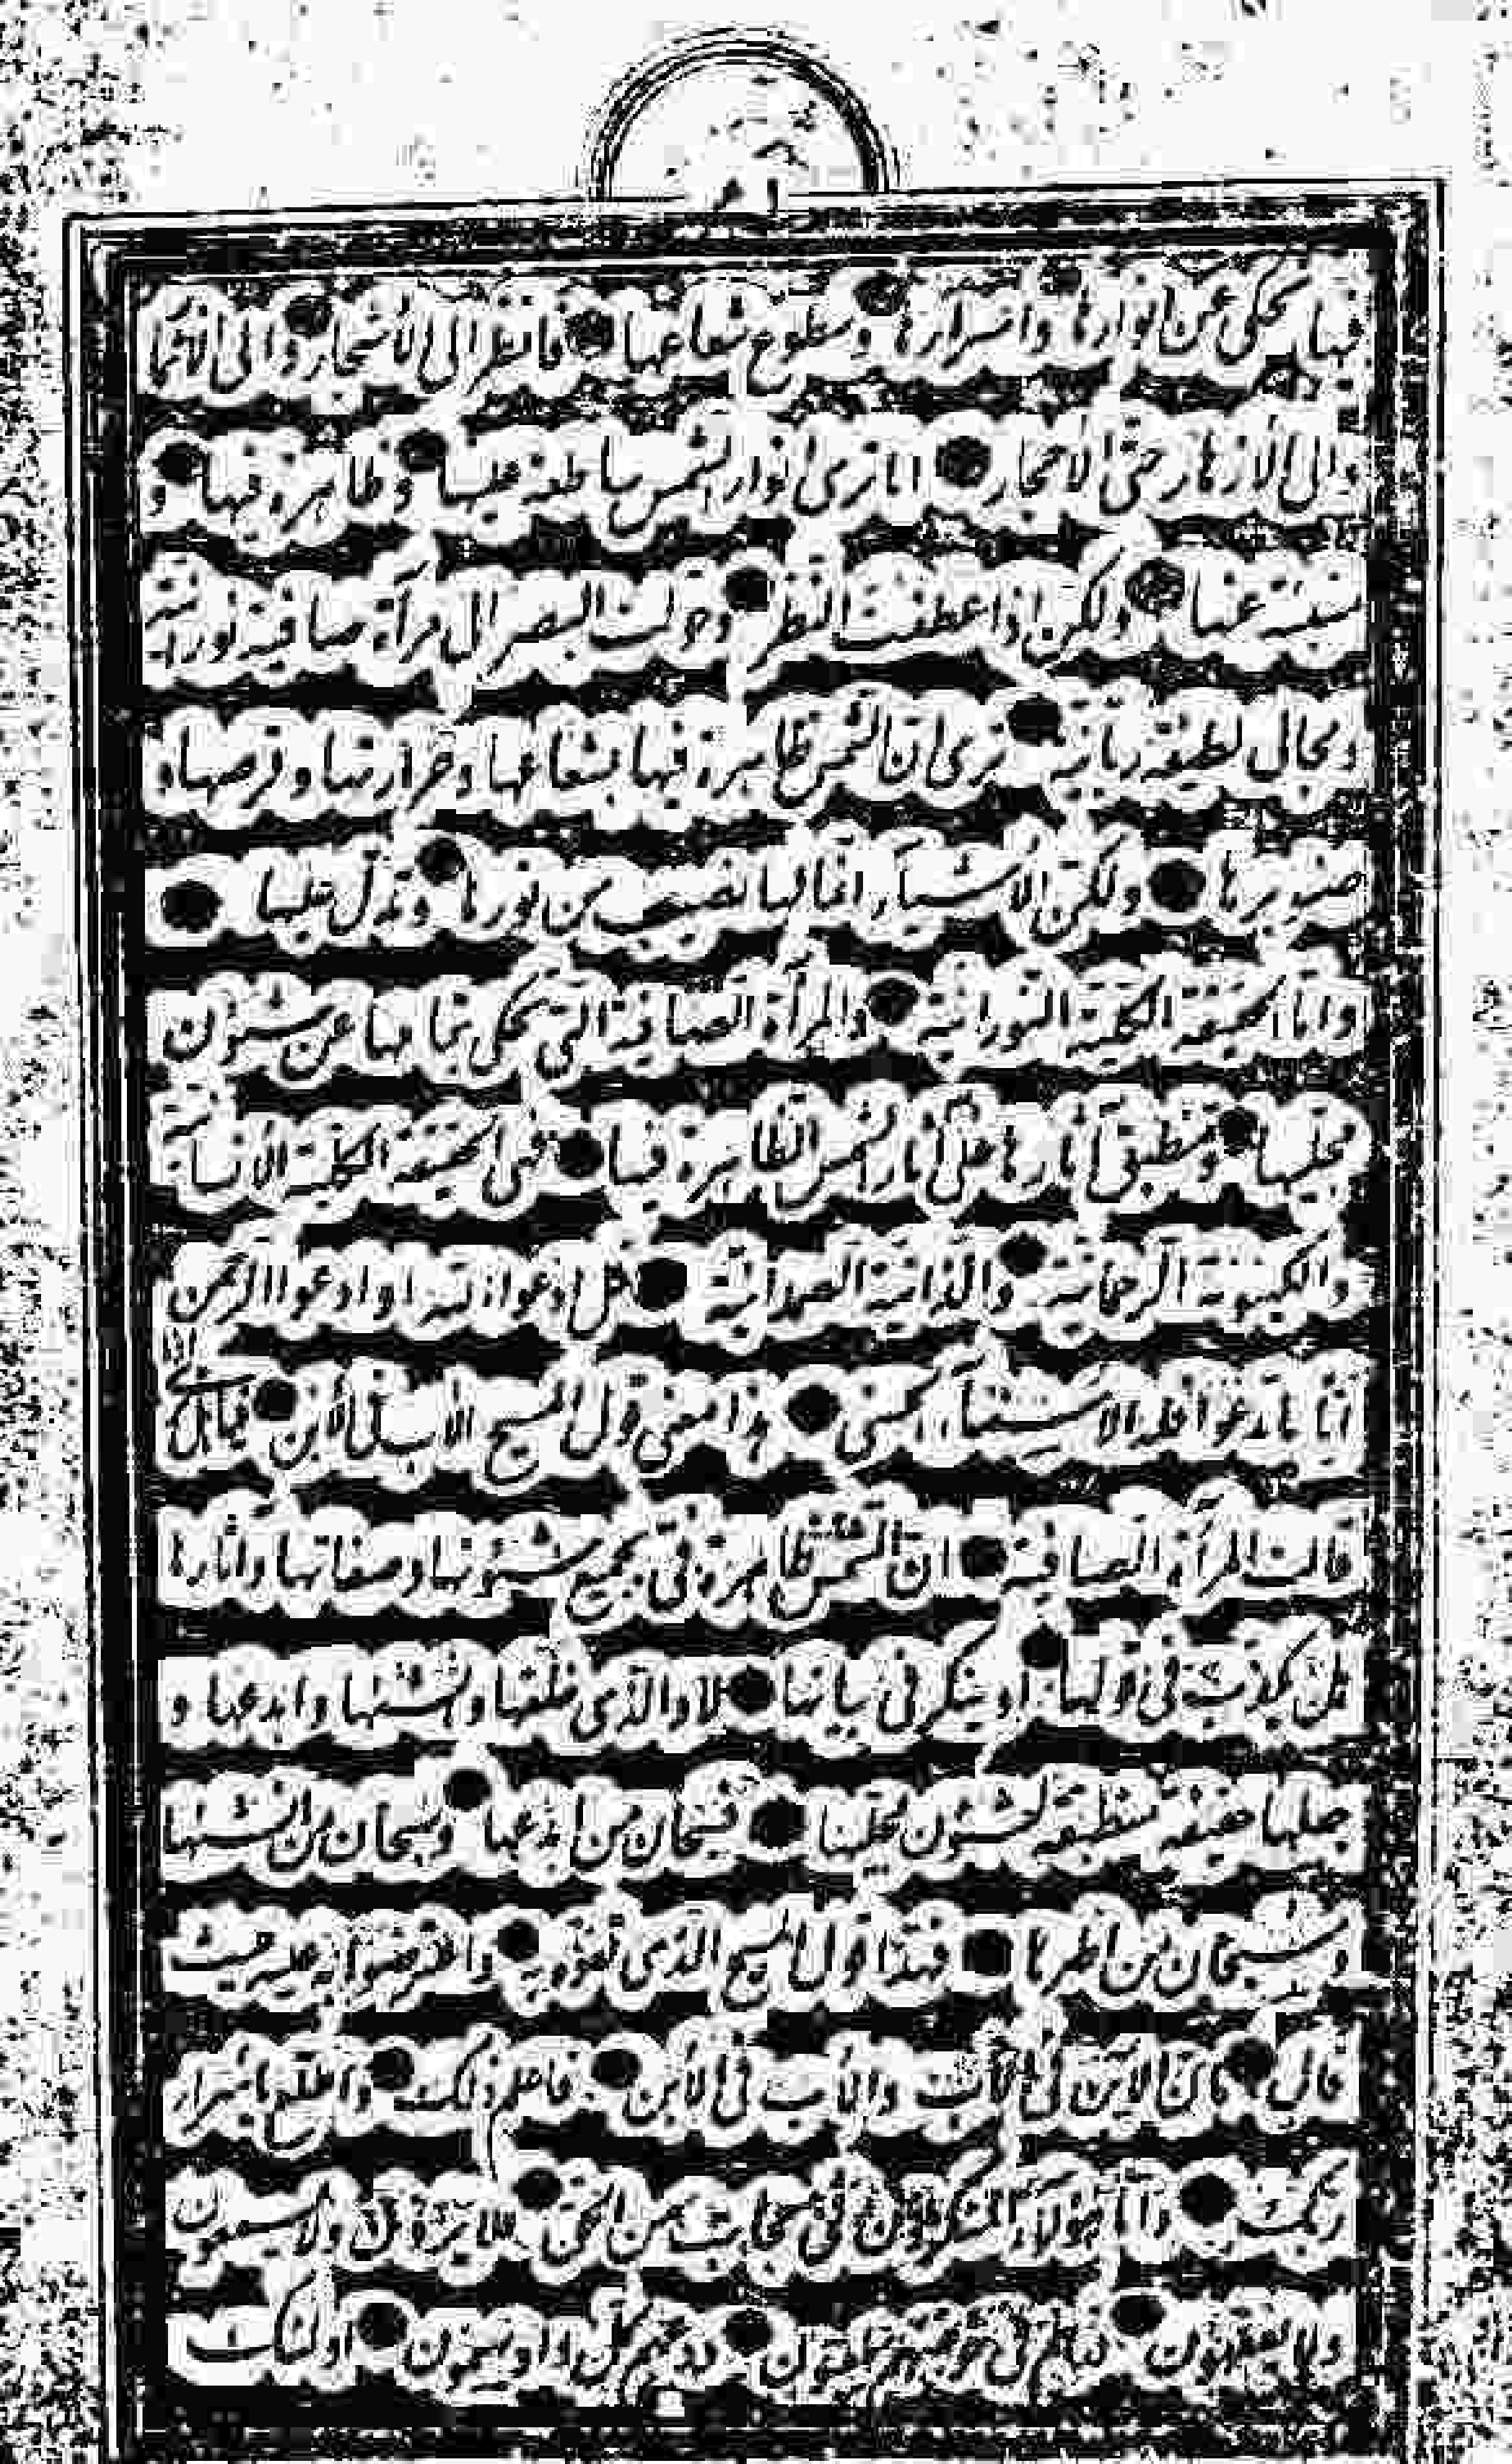 فيها يحكى عن انوارها واسرارها وسطوع شعاعها فانظر الى الاشجار والى الاثمار
والى الازهار حتى الاحجار اما ترى انوار الشمس ساطعة عليها وظاهرة فيها و
منبئة عنها ولكن اذا عطفت النظر وحولت البصر الى مرآة صافية نورانية
ومجالى لطيفة ربانية ترى ان الشمس ظاهرة فيها بشعاعها وحرارتها وقرصها و
صنوبرها ولكن الاشياء انما لها نصيب من نورها وتدل عليها
واما الحقيقة الكلية النورانية والمرآة الصافية التى تحكى بتمامها عن شئون
مجليها وتنطبق آثارها على آثار الشمس الظاهرة فيها فهى الحقيقة الكلية الانسانية
والكينونة الرحمانية والذاتية الصمدانية قل ادعوا الله او ادعوا الرحمن
اياما تدعوا فله الاسماء الحسنى هذا معنى قول المسيح الاب فى الابن فيا هل
قالت المرآة الصافية ان الشمس ظاهرة فى بجميع شئونها وصفاتها وآثارها
هل يكذب فى قولها او ينكر فى بيانها لا والذى خلقها وانشئها وابدعها و
جعلها حقيقة منطبقة لشئون مجليها فسبحان من ابدعها وسبحان من انشئها
وسبحان من اظهرها فهذا قول المسيح الذى تفوه به واعترضوا به عليه حيث
قال ان الابن فى الاب والاب فى الابن فاعلم ذلك واطلع باسرار
ربك واما هؤلاء المنكرون فى حجاب من الحق لا يرون ولا يسمعون
ولا يفقهون ذرهم فى خوضهم يلعبون ودعهم فى كل واد يهيمون اولئك